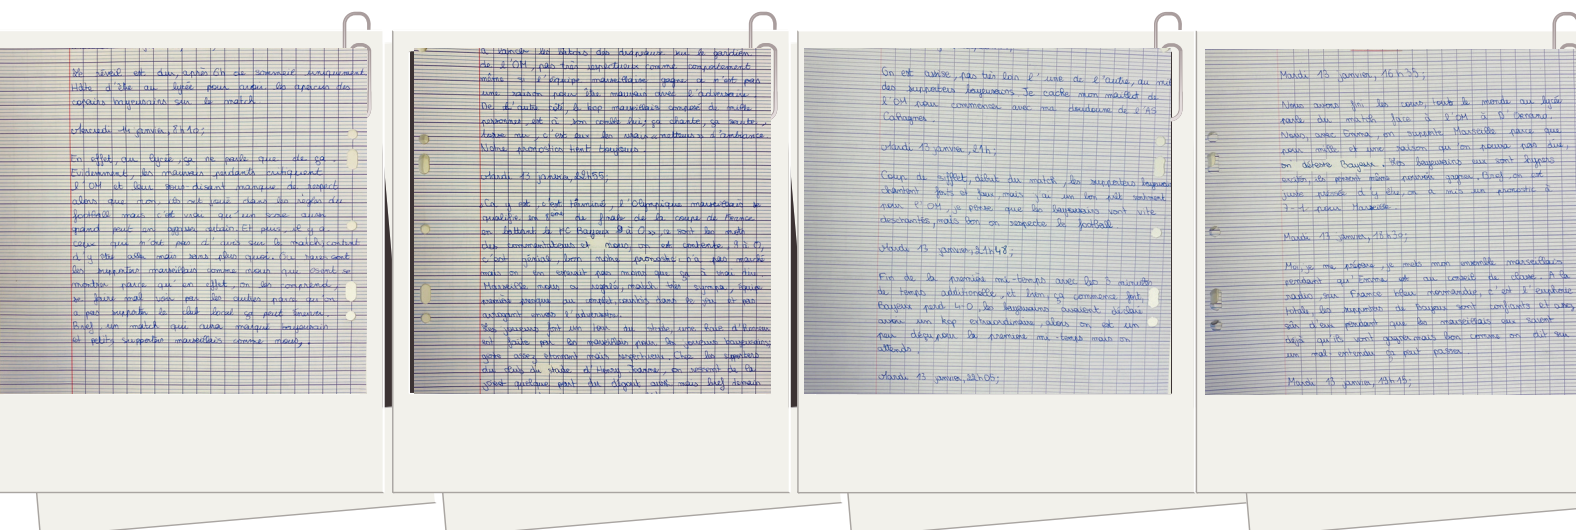 Le réveil est dur, après 6h de sommeil uniquement
Hâte d'être au lycée pour avoir les aperçus des
copains bayeusains sur le match.
Mercredi 14 janvier, 8h10;
En effet, au lycée, ça ne parle que de ça.
Evidemment, les mauvais perdants critiquent
l'OM et leur sous disant manque de respect
alors que non, ils ont joué dans les règles du
football mais c'est vrai qu'un score aussi
grand peut en agacer certain. Et puis, il y a
ceux qui n'ont pas d'avis sur le match, content
d'y être allé mais sans plus quoi. Ou sont
les supporters marseillais comme nous qui osent se
montrer parce qu'en effet, on les comprend,
se faire mal voir par les autres parce qu'on
a pas supporter le club local ça peut énerver.
Bref, un match qui aura marqué bayeusain
et petits supporters marseillais comme nous,
à lancer les bâtons des drapeaux sur le gardien
de l'OM, pas très respectueux comme comportement
même si l'équipe marseillaise gagne ce n'est pas
une raison pour être mauvais avec l'adversaire.
De d'autre côté, le kop marseillais composé de mille
personnes, est à son comble lui; ça chante, ça saute,
torse nu, c'est eux les vrais «metteurs» d'ambiance.
Notre pronostic tient toujours.
Mardi 13 janvier, 22h55;
«Ça y est, c'est terminé, l'Olympique marseillais se
qualifie en 8ème de finale de la coupe de France
en battant le FC Bayeux 9 à 0», ce sont les mots
des commentateurs et nous, on est contente 9 à 0,
c'est génial, bon notre pronostic n'a pas marché
mais on en espérait pas moins que ça à vrai dire.
Marseille nous a régalé, match très sympa, équipe
première presque au complet, courtois dans le jeu et pas
arrogant envers l'adversaire.
Les joueurs font un tour du stade, une haie d'honneur
est faite par les marseillais pour les joueurs bayeusains,
geste assez étonnant mais respectueux. Chez les supporters
du club du stade d'Henry Jeanne, on ressent de la
joie et quelque part du dégout aussi mais bref demain
On est assise, pas très loin l'une de l'autre, au milieu
des supporters bayeusains. Je cache mon maillot de
l'OM pour commencer avec ma doudoune de l'AS
Cahagnes.
Mardi 13 janvier, 21h;
Coup de sifflet, début du match, les supporters bayeusains
chantent forts et tous, mais j'ai un bon pressentiment
pour l'OM, je pense que les bayeusains vont vite
déchantés, mais bon on respecte le football.
Mardi 13 janvier, 21h48;
Fin de la première mi-temps avec les 3 minutes
de temps additionnelle, et bien, ça commence fort,
Bayeux perd 4-0, les bayeusains avaient déclaré
avoir un kop extraordinaire, alors on est un
peu déçu pour la première mi-temps mais on
attends.
Mardi 13 janvier, 22h05;
Mardi 13 janvier, 16h35;
Nous avons fini les cours, tout le monde au lycée
parle du match face à l'OM à D'Ornano.
Nous, avec Emma, on supporte Marseille parce que
pour mille et une raison qu'on pourra pas dire,
on déteste Bayeux. Les bayeusains eux sont hypers
excités, ils pensent même pouvoir gagner. Bref on est
juste pressée d'y être, on a mis un pronostic à
7-1 pour Marseille.
Mardi 13 janvier, 18h30;
Moi, je me prépare, je mets mon ensemble marseillais
pendant qu'Emma est au conseil de classe. A la
radio, sur France bleu normandie, c'est l'euphorie
totale, les supporters de Bayeux sont confiants et assez
sûr d'eux pendant que les marseillais eux savent
déjà qu'ils vont gagner mais bon comme on dit sur
un mal-entendu ça peut passer.
Mardi 13 janvier, 19h15;